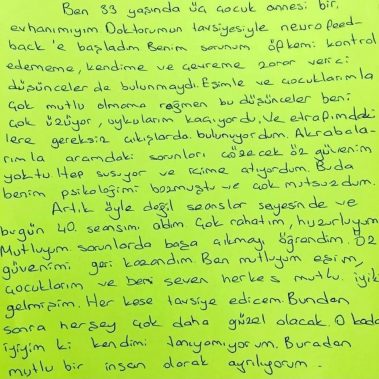 Ben 33 yaşında üç çocuk annesi bir,
evhanımıyım Doktorumun tavsiyesiyle neurofeed-
back'e başladım Benim sorunum öfkemi kontrol
edememe, kendime ve çevreme zarar verici
düşünceler de bulunmaydı. Eşimle ve çocuklarımla
çok mutlu olmama rağmen bu düşünceler beni
çok üzüyor, uykularım kaçıyordu. Ve etrafımdaki
lere gereksiz çıkışlarda bulunuyordum. Akrabala-
rımla aramdaki sorunları çözecek öz güvenim
yoktu Hep susuyor ve içime atıyordum. Buda
benim psikolojimi bozmuştu ve çok mutsuzdum.
Artık öyle değil seanslar sayesinde ve
bugün 40. seansımı aldım. Çok rahatım, huzurluyum
Mutluyum. sorunlarda başa çıkmayı öğrendim. Öz
güvenimi geri kazandım. Ben mutluyum eşim,
çocuklarım ve beni seven herkes mutlu. iyik
gelmişim. Her kese tavsiye edicem. Bundan
sonra herşey çok daha güzel olacak. O kada
iyiyim ki kendimi tanıyamıyorum. Buradan
mutlu bir insan olarak ayrılıyorum.